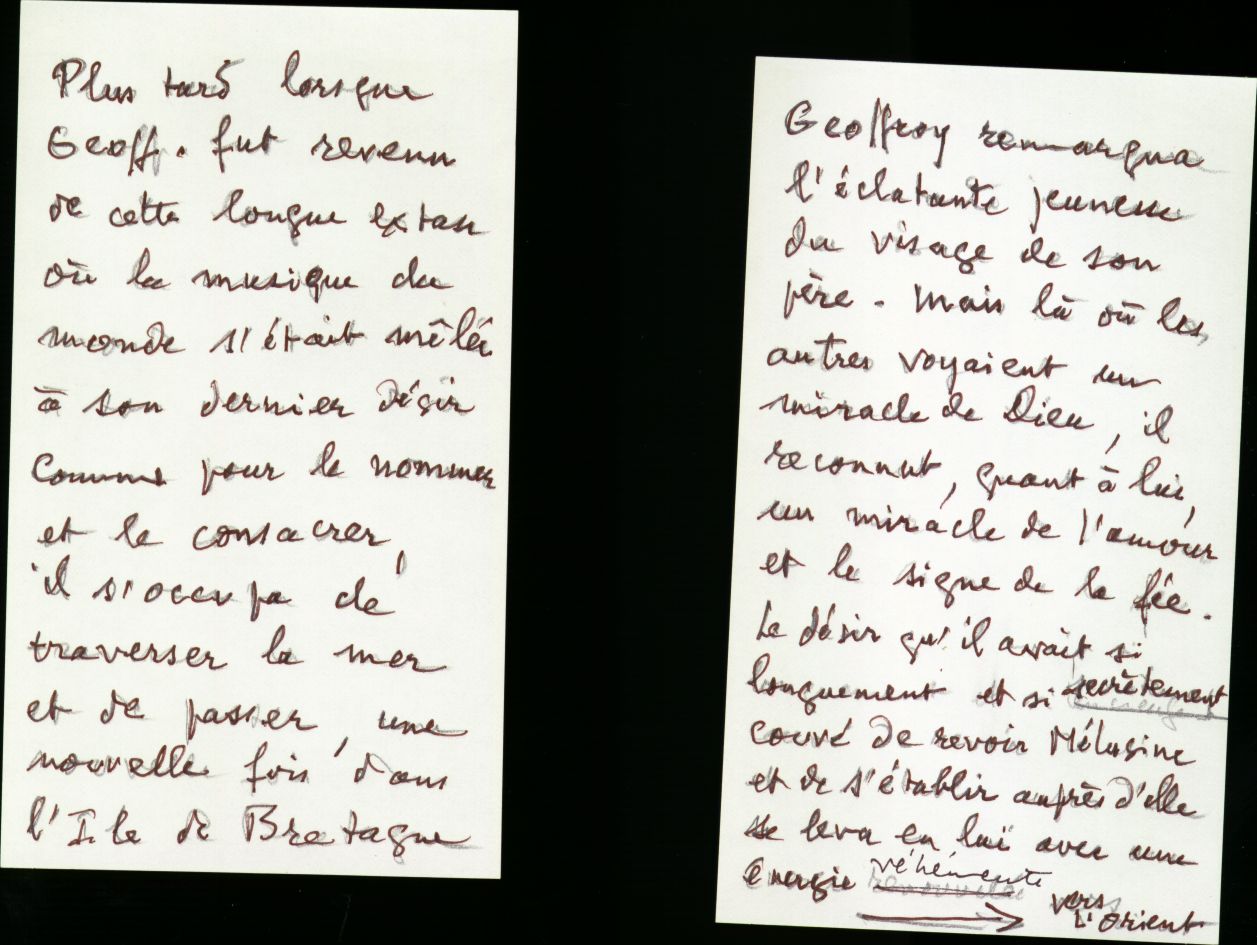 Plus tard lorsque
Geoff. fut revenu
de cette longue extase
où la musique du
monde s'était mêlée
à son dernier désir
comme pour le nommer
et le consacrer,
il s'occupa de
traverser la mer
et de passer, une
nouvelle fois dans
l'Ile de Bretagne
Geoffroy remarqua
l'éclatante jeunesse
du visage de son
père. Mais là où les
autres voyaient un
miracle de Dieu, il
reconnut, quant à lui,
un miracle de l'amour
et le signe de la fée.
Le désir qu'il avait si
longuement et si secrètement
couvé de revoir Mélusine
et de s'établir auprès d'elle
se leva en lui avec une
énergie véhémente
vers
l'Orient